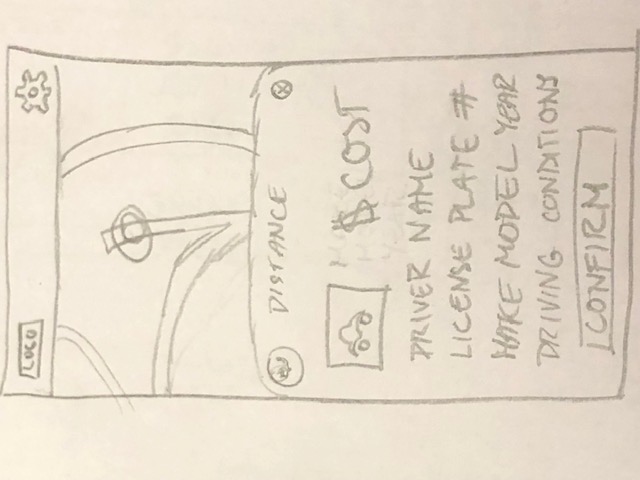 LOGO
DISTANCE
$ COST
DRIVER NAME
LICENSE PLATE #
MAKE MODEL YEAR
DRIVING CONDITIONS
CONFIRM